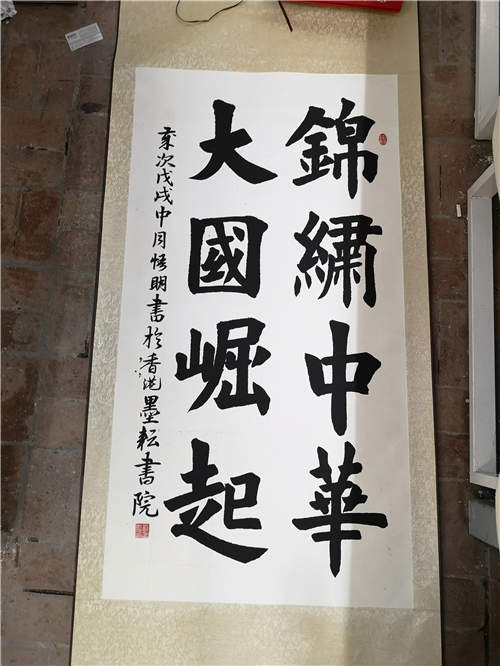 錦繡中華
大國崛起
歲次戊戌中周悟明書於香港墨耘書院